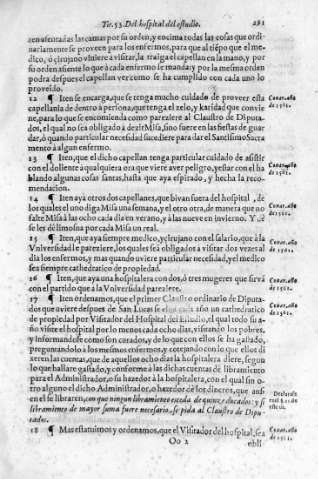 Tit. 53. Del hospital del estudio. 281
zen assentadas las camas por su orden, y encima todas las cosas que ordi-
nariamente se proveen para los enfermos, para que al tiēpo que el me-
dico, ò cirujano viniere a visitar, la traiga el capellan en la mano, y por
su orden assiente lo que à cada enfermo le manda; y por la mesma orden
podra despues el capellan ver como se ha cumplido con cada uno lo
proveido.
12 ¶ Iten se encarga, que se tenga mucho cuidado de proveer esta
capellania de dentro à persona, que tenga el zelo, y karidad que convie
ne, para lo que se encomienda como pareziere al Claustro de Diputa-
dos, el qual no sea obligado à dezir Missa, sino fuere en las fiestas de guar
dar, ò quando particular necesidad sucediere para dar el Santissimo Sacra
mento à algun enfermo.
13 ¶ Iten, que el dicho capellan tenga particular cuidado de assistir
con el doliente à qualquiera ora que viere aver peligro, y estar con el ha
blando algunas cosas santas, hasta que aya espirado, y hecha la reco-
mendacion.
14 ¶ Iten aya otros dos capellanes, que bivan fuera del hospital, de
los quales el uno diga Missa una semana, y el otro otra, de manera que no
falte Missa à las ocho cada dia en verano, y à las nueve en invierno. Y de
se les dè limosna por cada Missa un real.
15 ¶ Iten, que aya siempre medico, y cirujano con el salario, que à la
Vniversidad le pareziere, los quales sea obligados a visitar dos vezes al
dia los enfermos, y mas quando uviere particular necesidad, y el medico
sea siempre cathedratico de propiedad.
16 ¶ Iten, que aya una hospitalera con dos, ò tres mugeres que sirvā
con el partido que à la Vniversidad pareziere.
17 ¶ Iten ordenamos, que el primer Claustro ordinario de Diputa-
dos que oviere despues de San Lucas se elija cada año un cathedratico
de propiedad por Visitador del Hospital del Estudio, el qual todo su a-
ño visite el hospital por lo menos cada ocho dias, visitando los pobres,
y informandose como son curados, y de lo que con ellos se ha gastado,
preguntandolo a los mesmos enfermos, y cotejando con lo que ellos di
xeren las cuentas, que de aquellos ocho dias la hospitalera diere, segun
lo que hallare gastado, y conforme à las dichas cuentas dè libramiento
para el Administrador, o su hazedor à la hospitalera, con el qual sin o-
tro alguno el dicho Administrador, o hazedor dè los dineros, que assi
en el se libraren, con que ningun libramiento exceda de quinze ducados: y si
libramiento de mayor suma fuere necesario, se pida al Claustro de Dipu-
tados.
18 ¶ Mas estatuimos y ordenamos, que el Visitador del hospital, sea
Oo 2 obli